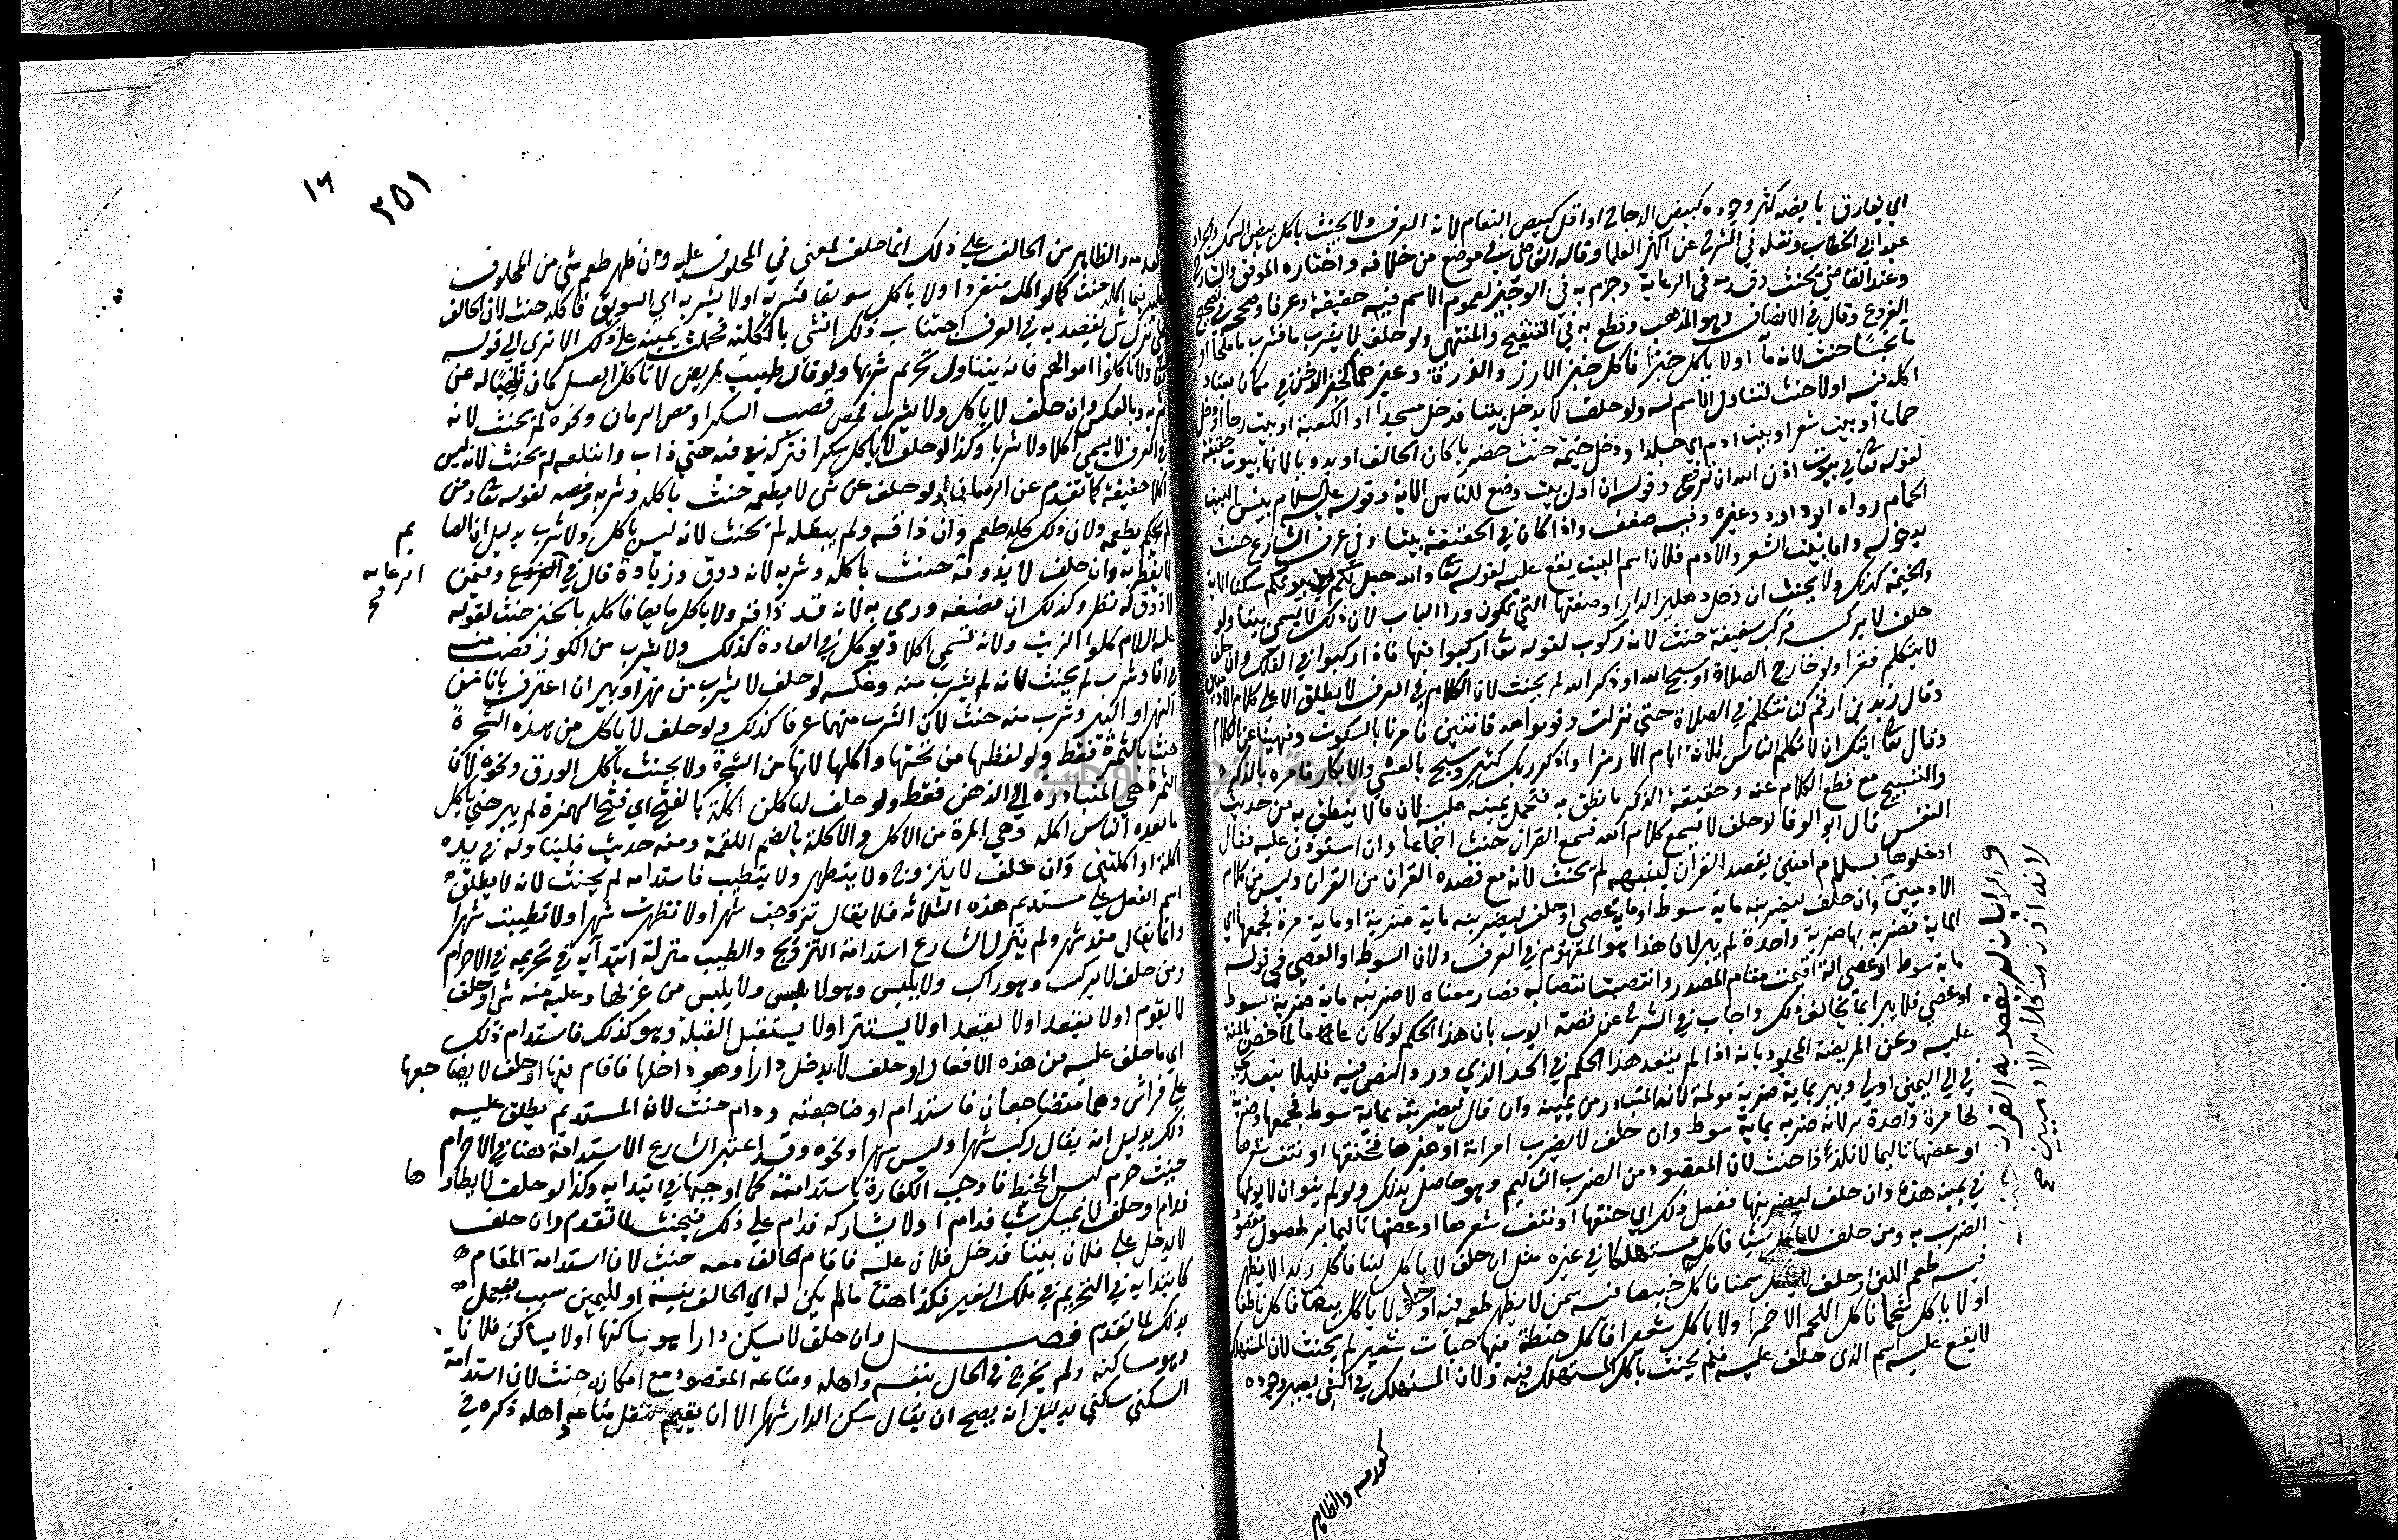 اي يفارق بايضه كثر وجوده كبيض الدجاج او اقل كبيض النعام لانه العرف ولا يحنث باكل بيض السمك والجراد
عند ابي الخطاب ونقله في الشرح عن اكثر العلما وقاله القاضي في موضع من خلافه واختاره الموفق والشارح
وعند القاضي يحنث وقدمه في الرعاية وجزم به في الوجيز لعموم الاسم فيه حقيقة وعرفا وصححه في تصحيح
الفروع وقال في الانصاف وهو المذهب وقطع به في التنقيح والمنتهى ولو حلف لا يشرب ما فشرب ما ملحا او
ما نجسا حنث لانه ما او لا ياكل خبزا فاكل خبز الارز والذرة وغيرهما كخبز الدخن في مكان يعتاد
اكله فيه او لا حنث لتناول الاسم له ولو حلف لا يدخل بيتا فدخل مسجدا او الكعبة او بيت رحا او دخل
حماما او بيت شعر او بيت ادم اي جلد او دخل خيمة حنث حضريا كان الحالف او بدويا لانها بيوت حقيقة
لقوله تعالى في بيوت اذن الله ان ترفع وقوله ان اول بيت وضع للناس الاية وقوله عليه السلام بيس البيت
الحمام رواه ابو داود وغيره وفيه ضعف واذا كان في الحقيقة بيتا وفي عرف الشارع حنث
بدخوله واما بيت الشعر والادم فلان اسم البيت يقع عليه لقوله تعالى والله جعل لكم من بيوتكم سكنا الاية
والخيمة كذلك ولا يحنث ان دخل دهليز الدار او صفتها التي تكون ورا الباب لان ذلك لا يسمى بيتا ولو
حلف لا يركب فركب سفينة حنث لانه ركوب لقوله تعالى اركبوا فيها فاذا ركبوا في الفلك وان حلف
لا يتكلم فقرا ولو خارج الصلاة او سبح الله او ذكر الله لم يحنث لان الكلام في العرف لا يطلق الا على كلام الادميين
وقال زيد بن ارقم كنا نتكلم في الصلاة حتى نزلت وقوموا لله قانتين فامرنا بالسكوت ونهينا عن الكلام
وقال تعالى ايتك ان لا تكلم الناس ثلاثة ايام الا رمزا واذكر ربك كثيرا وسبح بالعشي والابكار فامره بالذكر
والتسبيح مع قطع الكلام عنه وحقيقة الذكر ما نطق به فتحمل يمينه عليه لان ما لا ينطق به من حديث
النفس قال ابو الوفا لو حلف لا يسمع كلام الله فسمع القران حنث اجماعا وان استوذن عليه فقال
ادخلوها بسلام امنين يقصد القران لينبهه لم يحنث لانه مع قصده القران من القران وليس من كلام
الادميين وان حلف ليضربنه ماية سوط او ماية عصى او حلف ليضربنه ماية ضربة او ماية مرة فجمعها اي
الماية فضربه بها ضربة واحدة لم يبر لان هذا هو المفهوم في العرف ولان السوط او العصي في قوله
ماية سوط او عصى الة اقيمت مقام المصدر وانتصبت انتصابه فصار معناه لاضربنه ماية ضربة بسوط
او عصي فلا يبر بما يخالف ذلك واجاب في الشرح عن قصة ايوب بان هذا الحكم لو كان عاما لما اختص بالمنة
عليه وعن المريض المجلود بانه اذا لم يتعد هذا الحكم في الحد الذي ورد النص فيه فليلا يتعدى
في الي اليمين اولى ويبر بماية ضربة مولمة لانه المتبادر من يمينه وان قال ليضربنه بماية سوط فجمعها وضربه
لها مرة واحدة بر لانه ضربه بماية سوط وان حلف لا يضرب امراته او غيرها فخنقها او نتف شعرها
او عضها تاليما لا تلذذا حنث لان المقصود من الضرب التاليم وهو حاصل بذلك ولو لم ينو ان لا يولمها
في يمينه هذه وان حلف ليضربنها ففعل ذلك اي خنقها او نتف شعرها او عضها تاليما بر لحصول مقصود
الضرب به ومن حلف لا ياكل شيا فاكله مستهلكا في غيره مثل ان حلف لا ياكل لبنا فاكل زبدا لا يظهر
فيه طعم اللبن او حلف لا ياكل سمنا فاكل خبيصا فيه سمن لا يظهر طعمه فيه او حلف لا ياكل بيضا فاكل ناطفا
او لا ياكل شحما فاكل اللحم الاحمر او لا ياكل شعيرا فاكل حنطة فيها حبات شعير لم يحنث لان المستهلك
لا يقع عليه اسم الذي حلف عليه فلم يحنث باكل المستهلك فيه ولان المستهلك في الشي يصير وجوده
كعدمه والظاهر
والاتيان لم يقصد به القران حنث
لانه اذن من كلام الادميين صح
٢٥١
١٦
كعدمه والظاهر من الحالف على ذلك انما حلف لمعنى في المحلوف عليه وان ظهر طعم شي من المحلوف
عليه فيما اكله حنث كما لو اكله منفردا ولا ياكل سويقا فشربه او لا يشربه اي السويق فاكله حنث لان الحالف
على ترك شي يقصد به في العرف اجتناب ذلك الشي بالكلية فحملت يمينه على ذلك الا ترى الى قوله
تعالى ولا تاكلوا اموالهم فانه يتناول تحريم شربها ولو قال طبيب لمريض لا تاكل العسل كان ناهيا له عن
شربه وبالعكس وان حلف لا ياكل ولا يشرب فمص قصب السكر او مص الرمان ونحوه لم يحنث لانه
في العرف لا يسمى اكلا ولا شربا وكذا لو حلف لا ياكل سكرا فتركه في فيه حتى ذاب وابتلعه لم يحنث لانه ليس
اكلا حقيقة كما تقدم عن الرماني ولو حلف عن شي لا يطعمه حنث باكله وشربه ومصه لقوله تعالى ومن
لم يطعمه ولان ذلك كله طعم وان ذاقه ولم يبلعه لم يحنث لانه ليس باكل ولا شرب بدليل ان الصايم
لا يفطر به وان حلف لا يذوقه حنث باكله وشربه لانه ذوق وزيادة قال في الرعاية وفيمن
لا ذوق له نظر وكذلك ان مضغه ورمى به لانه قد ذاقه ولا ياكل مايعا فاكله بالخبز حنث لقوله
عليه السلام كلوا الزيت ولانه يسمى اكلا ويوكل في العادة كذلك ولا يشرب من الكوز فصب منه
في انا وشرب لم يحنث لانه لم يشرب منه وعكسه لو حلف لا يشرب من نهر او بير ان اغترف بانا من
النهر او البير وشرب منه حنث لان الشرب منهما عرفا كذلك ولو حلف لا ياكل من هذه الشجرة
حنث بالثمرة فقط ولو لقطها من تحتها واكلها لانها من الشجرة ولا يحنث باكل الورق ونحوه لان
الثمرة هي المتبادرة الى الذهن فقط ولو حلف لياكلن اكلة بالفتح اي فتح الهمزة لم يبر حتى ياكل
ما يعده الناس اكلة وهي المرة من الاكل والاكلة بالضم اللقمة ومنه حديث فليناوله في يده
اكلة او اكلتين وان حلف لا يتزوج ولا يتطهر ولا يتطيب فاستدامه لم يحنث لانه لا يطلق
اسم الفعل على مستديم هذه الثلاثة فلا يقال تزوجت شهرا ولا تطهرت شهرا ولا تطيبت شهرا
وانما يقال منذ شهر ولم ينزل الشارع استدامة التزويج والطيب منزلة ابتدائه في تحريمه في الاحرام
ومن حلف لا يركب وهو راكب ولا يلبس وهو لابس ولا يلبس من غزلها وعليه منه شي او حلف
لا يقوم او لا يقعد او لا يقعد او لا يستتر او لا يستقبل القبلة وهو كذلك فاستدام ذلك
اي ما حلف عليه من هذه الافعال او حلف لا يدخل دارا وهو داخلها فاقام فيها او حلف لا يضاجعها
على فراش وهما متضاجعان فاستدام او ضاجعته ودام حنث لان المستديم يطلق عليه
ذلك بدليل انه يقال ركب شهرا ولبس شهرا ونحوه وقد اعتبر الشارع الاستدامة هنا في الاحرام
حيث حرم لبس المخيط فاوجب الكفارة باستدامته كما اوجبها في ابتدايه وكذا لو حلف لا يطاها
فدام او حلف لا يمسك شيا فدام او لا يشاركه فدام على ذلك فيحنث لما تقدم وان حلف
لا يدخل على فلان بيتا فدخل فلان عليه فاقام الحالف معه حنث لان استدامة المقام
كابتدايه في التحريم في ملك الغير فكذا هنا ما لم يكن له اي الحالف نية او لليمين سبب فيعمل
بذلك لما تقدم فصل وان حلف لا يسكن دارا هو ساكنها او لا يساكن فلانا
وهو مساكنه ولم يخرج في الحال بنفسه واهله ومتاعه المقصود مع امكانه حنث لان استدامة
السكنى سكنى بدليل انه يصح ان يقال سكن الدار شهرا الا ان يقيم لنقل متاعه واهله ذكره في